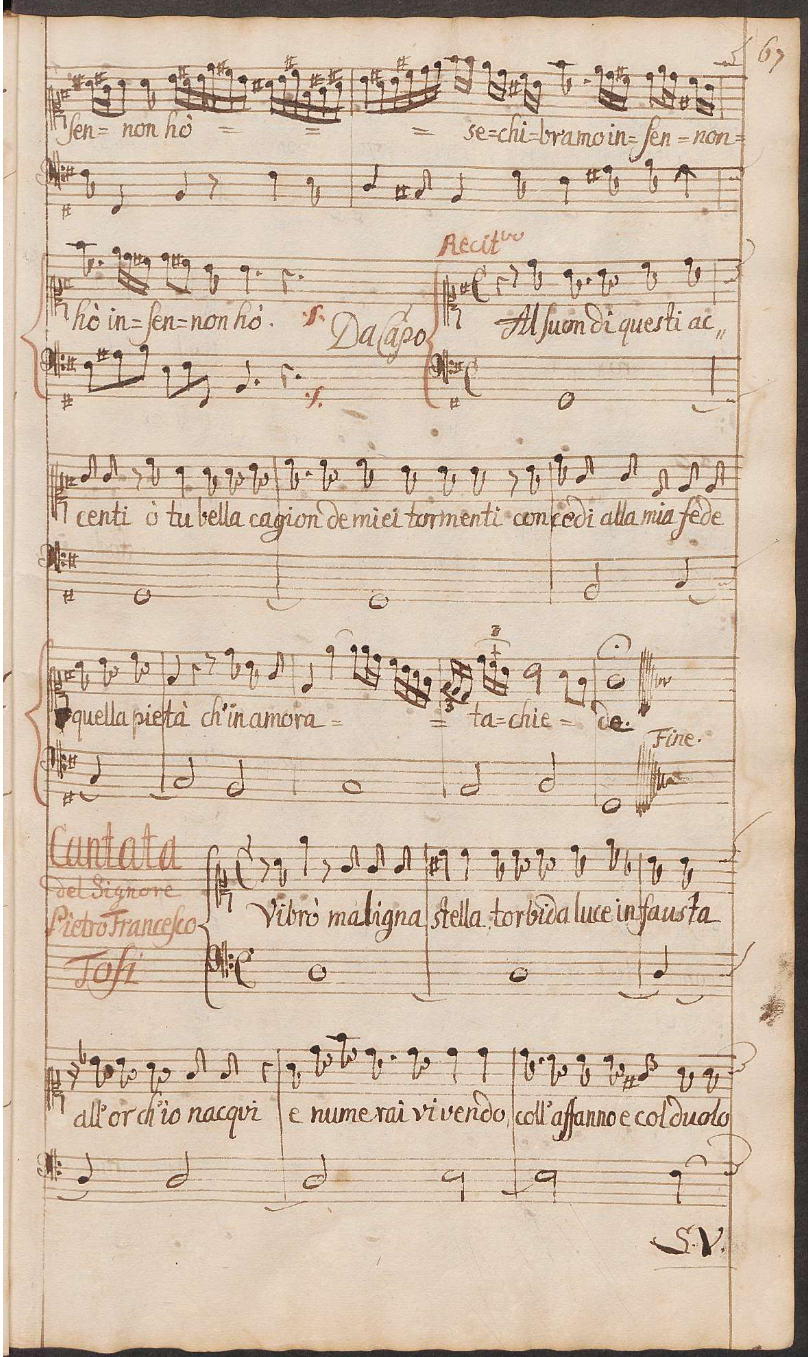 67
sen= non hò = = = se=chi=bramo in=sen=non=
Recit.vo
hò in=sen=non hò. Da Capo Al suon di questi ac,,
centi ò tu bella cagion de miei tormenti concedi alla mia fede
quella pietà ch'inamora = = ta=chie=de.
Fine.
Cantata
del Signore
Pietro Francesco
Tosi
Vibrò maligna stella torbida luce infausta
all'or ch'io nacqui e numerai vivendo coll'affanno e col duolo
S.V.